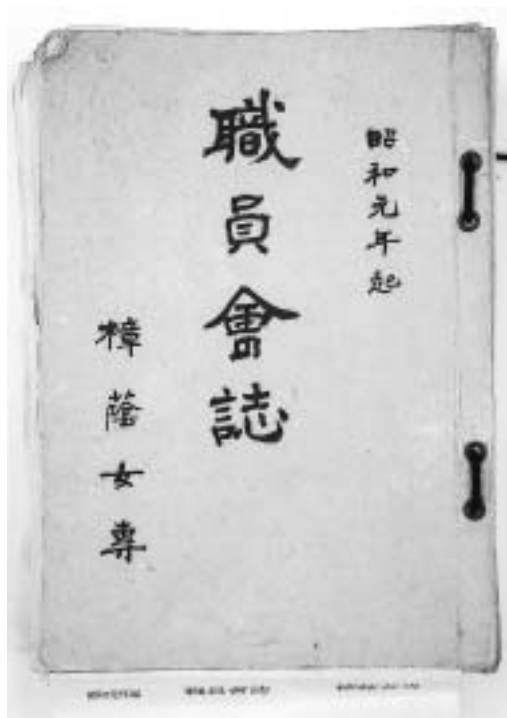 昭和元年起
職員會誌
樟蔭女專